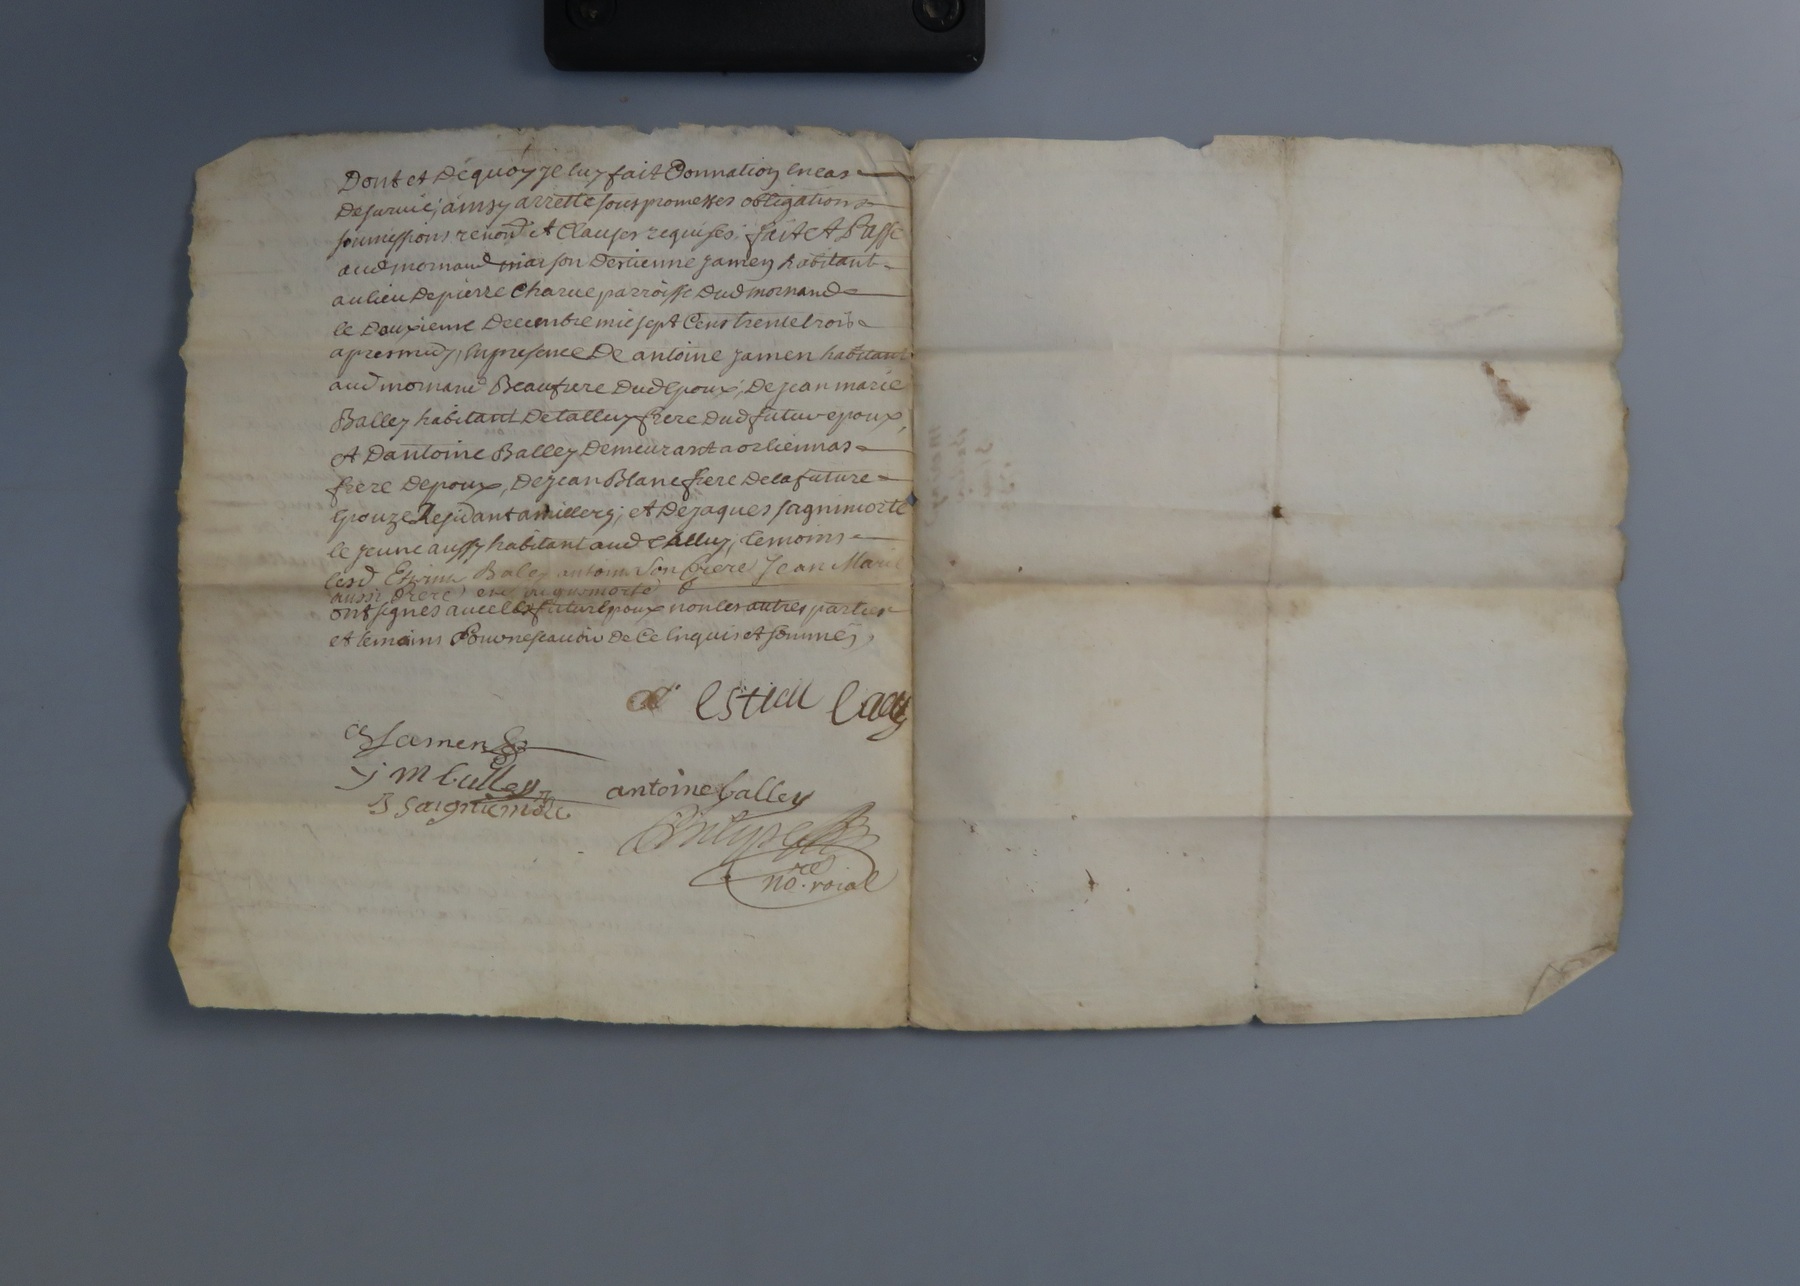 Dont et Dequoy je luy fait Donnation en cas
De survie; ainsy arretté sous promesses obligations
soumissions renon et Clauses requises; fait et Passé
aud mornand maison Destienne jamen habitant
au lieu De pierre Charue parroisse Dud mornand
le Deuxieme Decembre mil sept Cens trente trois
apres midy, en presence De antoine jamen habitant
aud mornand Beaufrere Dud Epoux, De jean marie
Balley habitant De talluy frere Dud futur epoux,
et Dantoine Balley Demeurant a orliennas
frere Depoux, De jean Blanc frere De la future
Epouze Residant a millery; et De jaques sagnimorte
le jeune aussy habitant aud talluy, temoins
lesd Baley antoine son frere Jean Marie
aussi frere
ont signes avec le futur Epoux non les autres parties
et temoins Pour ne scavoir de Ce Enquis et sommés,
Jamen
j m balley
antoine balley
no.re roial